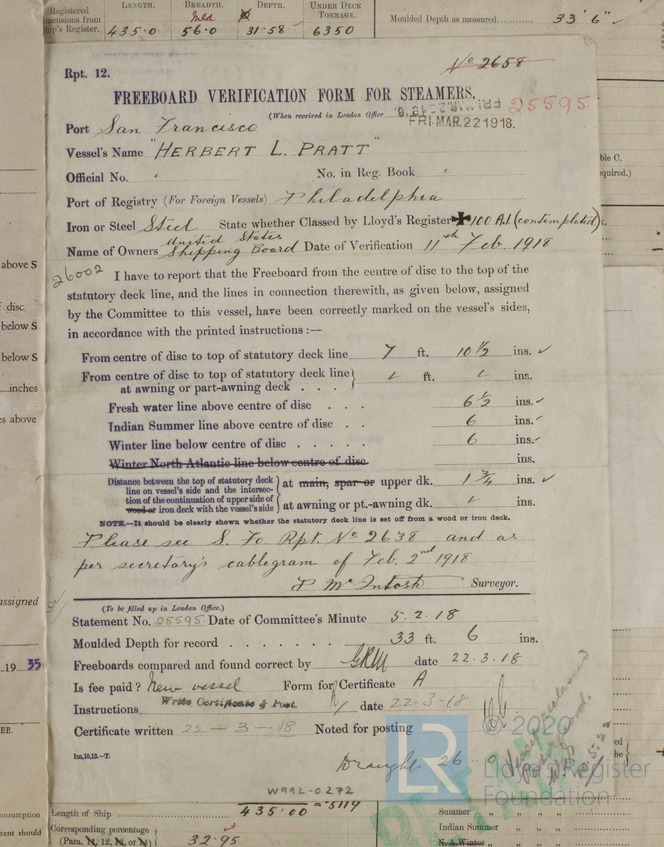 Registered
Dimensions from
Ship's Register.
LENGTH. BREADTH. DEPTH. UNDER DECK TONNAGE.
Mld
435.0 56.0 31.58 6350
Moulded Depth as measured 33' 6"
Rpt. 12.
No 2658
FREEBOARD VERIFICATION FORM FOR STEAMERS.
(When received in London Office
25595
FRI.MAR.22 1918.
Port San Francisco
Vessel's Name "HERBERT L. PRATT"
Official No. No. in Reg. Book
Port of Registry (For Foreign Vessels) Philadelphia
Iron or Steel Steel State whether Classed by Lloyd's Register ✠ 100 A.1. (contemplated)
Name of Owners United States Shipping Board Date of Verification 11th Feb. 1918
26002
I have to report that the Freeboard from the centre of disc to the top of the
statutory deck line, and the lines in connection therewith, as given below, assigned
by the Committee to this vessel, have been correctly marked on the vessel's sides,
in accordance with the printed instructions :—
From centre of disc to top of statutory deck line 7 ft. 10 1/2 ins. ✓
From centre of disc to top of statutory deck line
at awning or part-awning deck . . . ft. ins.
Fresh water line above centre of disc . . . 6 1/2 ins. ✓
Indian Summer line above centre of disc . . 6 ins. ✓
Winter line below centre of disc . . . . . 6 ins. ✓
Winter North Atlantic line below centre of disc ins.
Distance between the top of statutory deck
line on vessel's side and the intersec-
tion of the continuation of upper side of
wood or iron deck with the vessel's side
at main, spar or upper dk. 1 3/4 ins. ✓
at awning or pt.-awning dk. ins.
NOTE.—It should be clearly shown whether the statutory deck line is set off from a wood or iron deck.
Please see S. Fo Rpt. No 2638 and as
per secretary's cablegram of Feb. 2nd 1918
P McIntosh Surveyor.
(To be filled up in London Office.)
Statement No. 25595 Date of Committee's Minute 5.2.18
Moulded Depth for record . . . . . . . 33 ft. 6 ins.
Freeboards compared and found correct by GRM date 22.3.18
Is fee paid? New vessel Form for Certificate A
Instructions Write Certificate & Post. date 22-3-18
Certificate written 22-3-18 Noted for posting
1m,10,13.-T.
Draught 26
W992-0272
© 2020
LR
Lloyd's Register
Foundation
above S
disc
below S
below S
inches
above
assigned
19 35
ble C.
equired.)
Length of Ship 435.00 5119
Corresponding percentage
(Para. 11, 12, 13, or 14) 32.95
Summer
Indian Summer
N.A.Winter